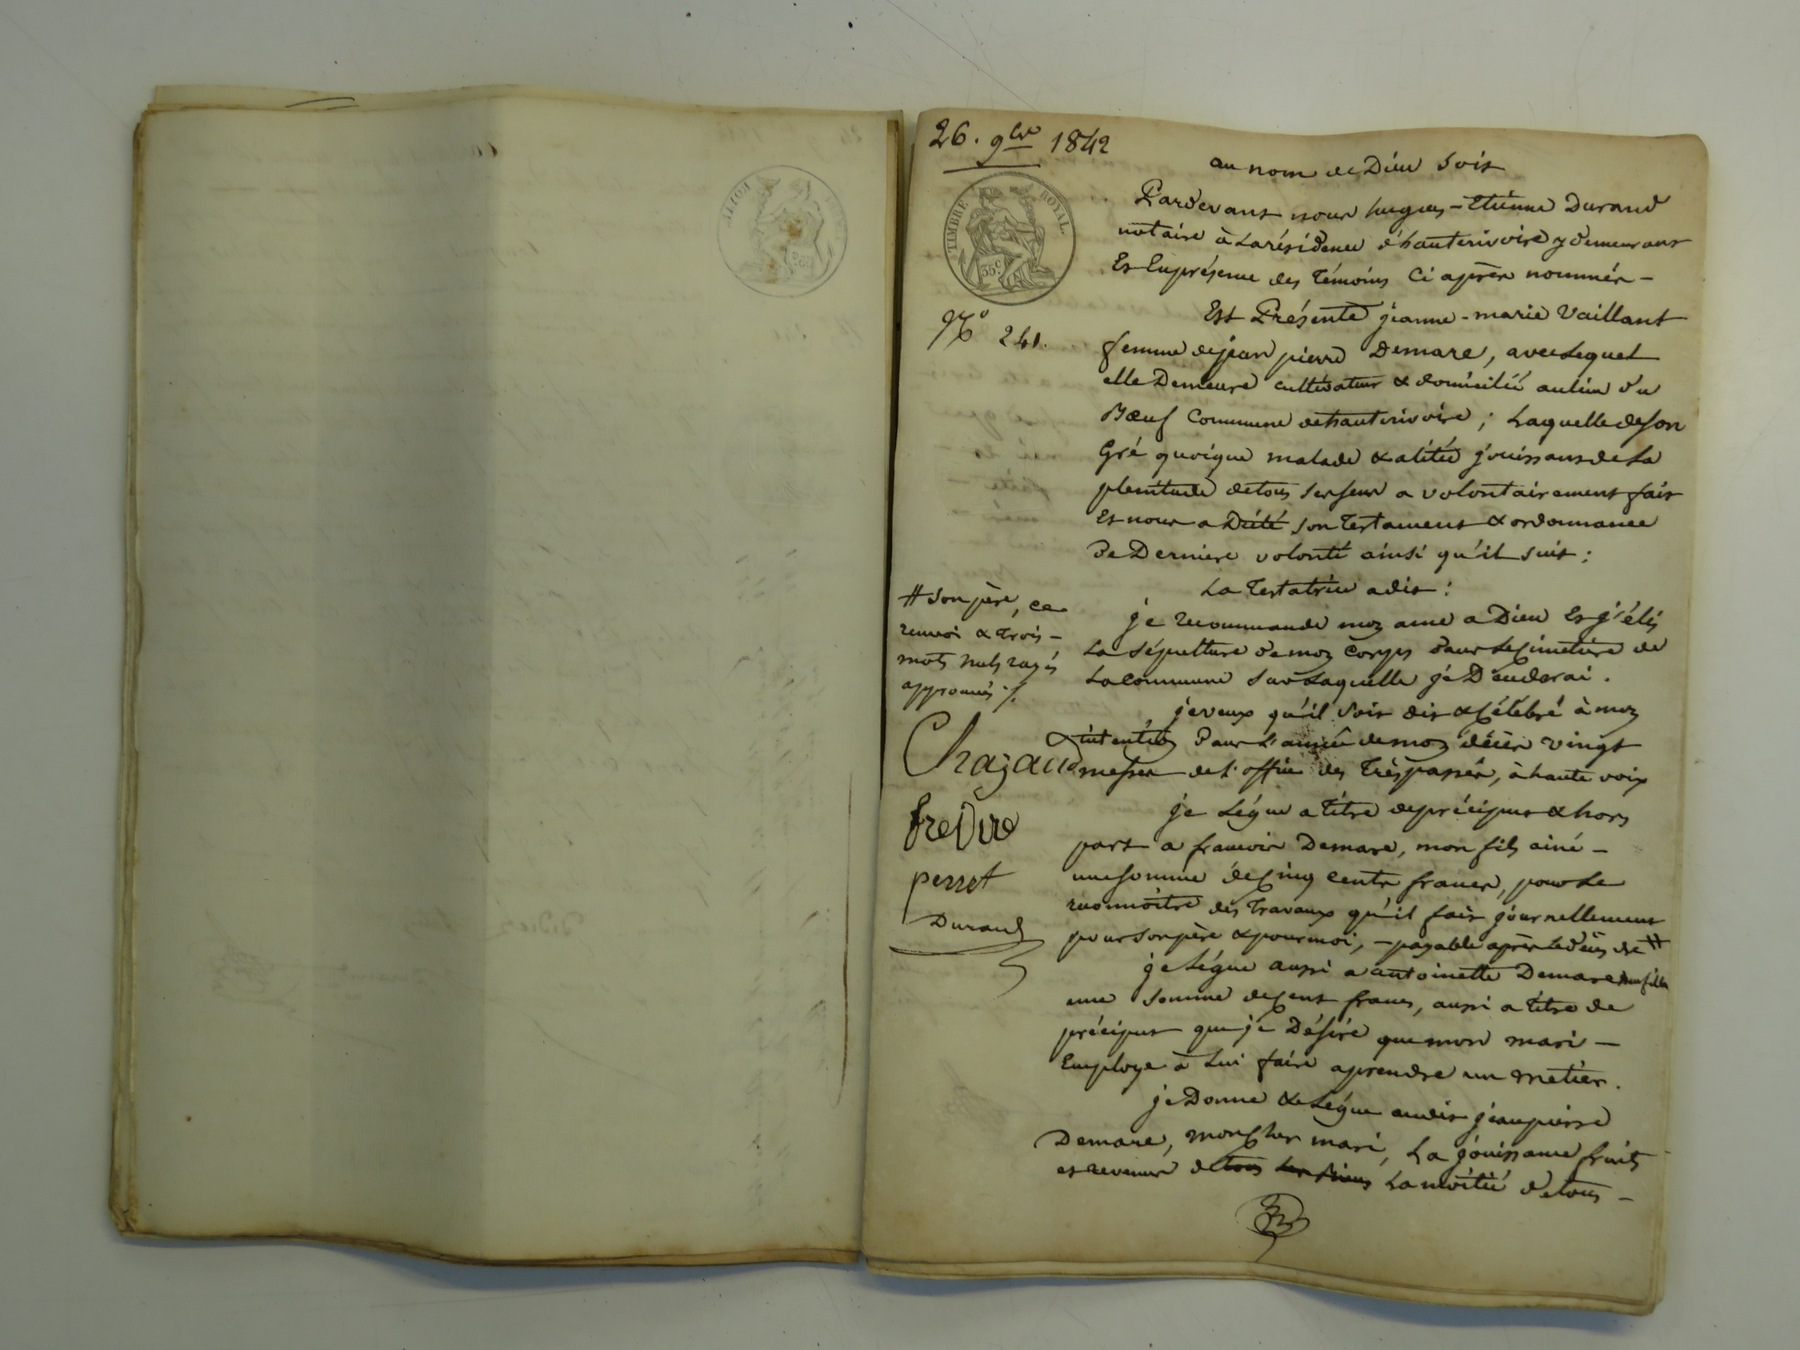 26. 9bre 1842
TIMBRE ROYAL
35 c
N° 241.
au nom de Dieu soit
Pardevant nous hugues-Etienne Durand
notaire à la résidence d'hauterivoire y demeurant
Et En présence des Témoins Ci après nommés -
Est Présente jeanne-marie Vaillant
femme de jean pierre Demare, avec Lequel
elle Demeure cultivateur & domiciliée au lieu du
Bœuf Commune de hauterivoire ; Laquelle de son
Gré quoique malade & alitée jouissant de La
plenitude de tous ses sens a volontairement fait
Et nous a Dicté son Testament & ordonnance
De Derniere volonté ainsi qu'il suit :
La Testatrice a dit :
je recommande mon ame a Dieu Et j'élis
La sépulture de mon Corps dans Le Cimetière de
La Commune sur Laquelle je Décéderai .
je veux qu'il soit dit & Célébré à mon
intention Dans L'année de mon décès vingt
messes de L'office des Trépassés, à haute voix
je Légue a titre de préciput & hors
part a francois Demare, mon fils ainé -
une somme de Cinq cents francs, pour Le
reconnoitre des Travaux qu'il fait journellement
pour son père & pour moi, - payable après Le décès de #
je Légue aussi a antoinette Demare ma fille
une somme de Cent francs, aussi a titre de
préciput que je Désire que mon mari -
Employe à Lui faire aprendre un metier .
je Donne & Légue audit jean pierre
Demare, mon Cher mari, La jouissance fruits
et revenus de tous Les Biens La moitié de tous -
# son père, ce
renvoi & trois -
mots nuls rayés
approuvés ./.
Chazaud
freDire
perret
Durand